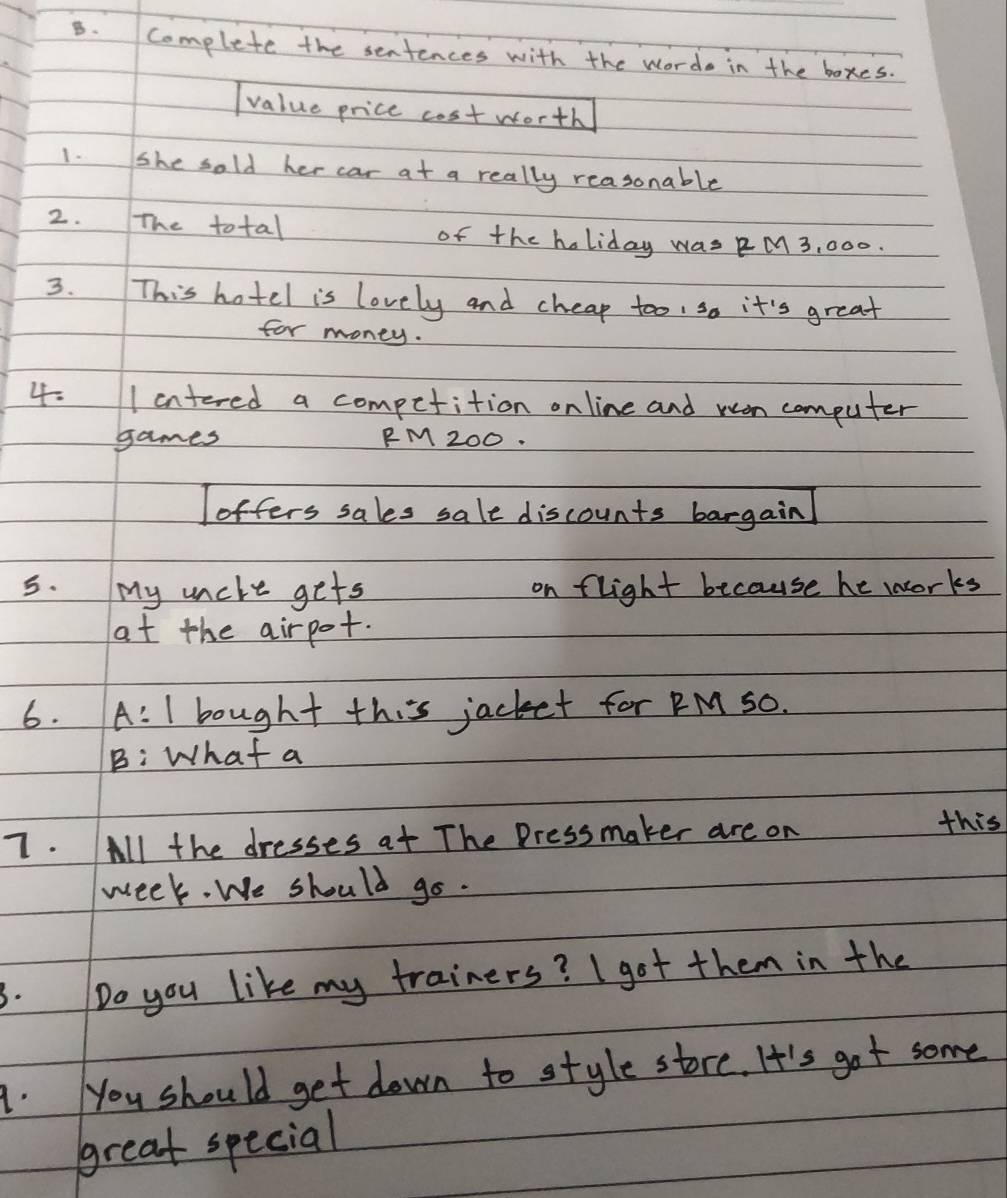 B. Complete the sentences with the words in the boxes.
value price cost worth
1. She sold her car at a really reasonable
2. The total of the holiday was RM 3,000.
3. This hotel is lovely and cheap too, so it's great
for money.
4. I entered a competition online and won computer
games RM 200.
offers sales sale discounts bargain
5. My uncle gets on flight because he works
at the airpot.
6. A: I bought this jacket for RM 50.
B: What a
7. All the dresses at The Dressmaker are on this
week. We should go.
8. Do you like my trainers? I got them in the
9. You should get down to style store. It's got some
great special